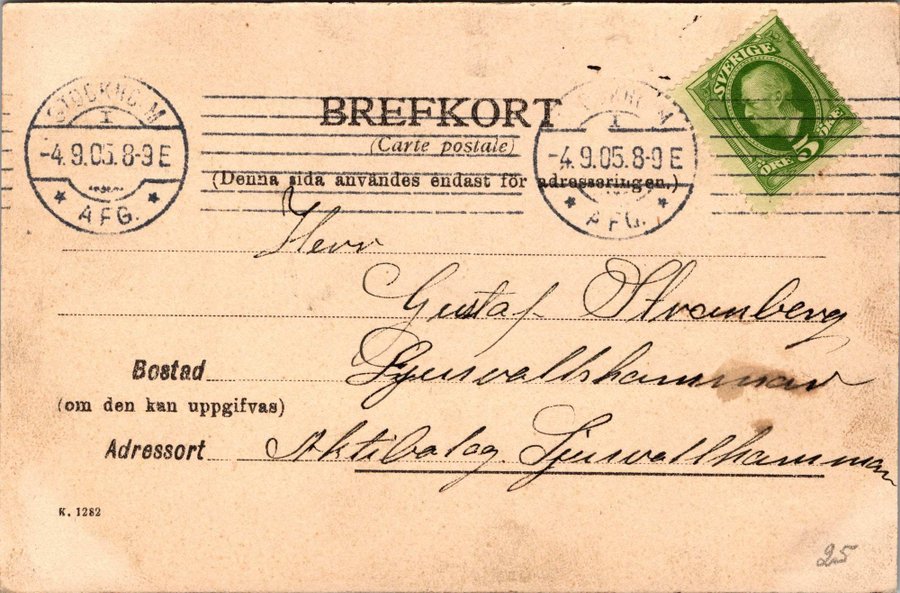 STOCKHOLM
1
-4.9.05.8-9 E
AFG.
BREFKORT
(Carte postale)
(Denna sida användes endast för adresseringen.)
1
-4.9.05.8-9 E
AFG.
SVERIGE
ÖRE 5 ÖRE
Herr
Gustaf Stromberg
Bostad
(om den kan uppgifvas)
Ljusvallshammar
Adressort Aktibolag Ljusvallshammar
K. 1282
25